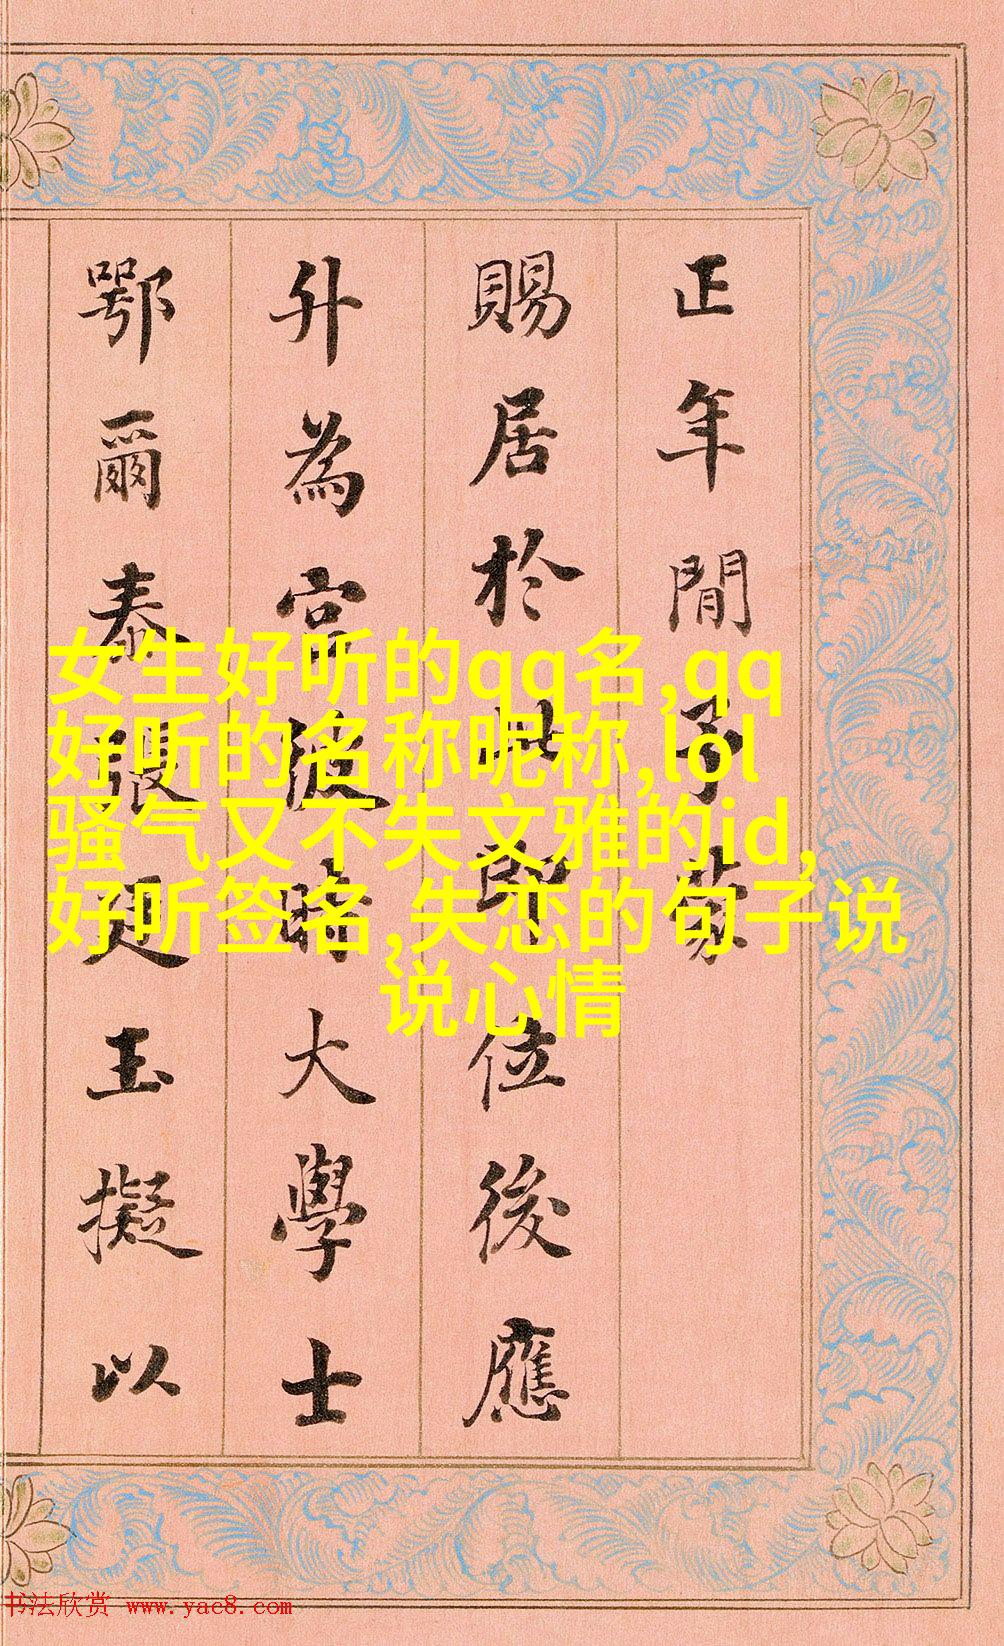 正年間予蒙
賜居於此即位後應
升為宮彼時大學士
鄂爾泰張廷玉擬以
女生好听的qq名,qq
好听的名称昵称,lol
骚气又不失文雅的id,
好听签名,失恋的句子说
说心情
书法欣赏 www.yac8.com